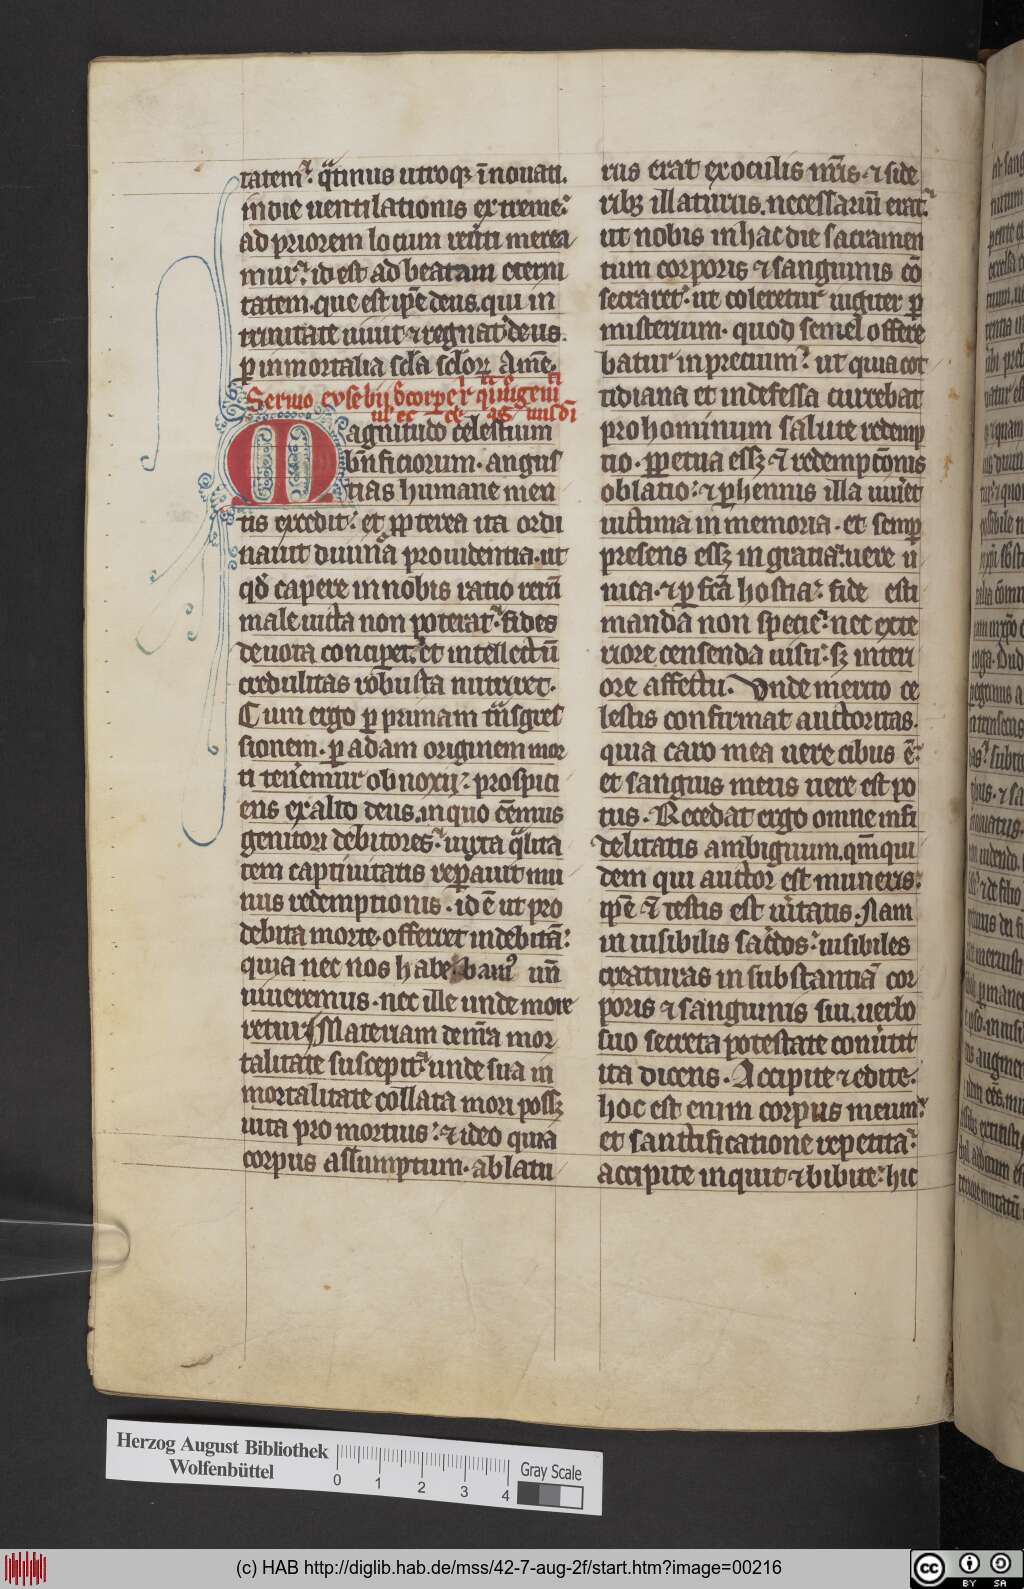 tatem⁊. q̃tinus utroqꝫ ĩnouati.
in die uentilationis extreme⁊
ad priorem locum reũti merea
mur⁊ id est ad beatam eterni
tatem. que est ip̃e deus. qui in
trinitate uiuit ⁊ regnat deus.
ꝑ inmortalia sc̃la sc̃loꝝ Ame̅.
Sermo eusebii
Magnitudo celestium
bñficiorum. angus
tias humane men
tis excedit⁊ et ꝓpterea ita ordi
nauit diuina prouidentia. ut
qđ capere in nobis ratio rerũ
male uicta non poterat⁊ fides
deuota conciperet. et intellectũ
credulitas robusta nutriret.
Cum ergo ꝑ primam tñsgres
sionem. ꝑ adam originem mor
ti teneremur obnoxij⁊ prospici
ens ex alto deus. in quo eẽmus
genitori debitores⁊ iuxta q̃lita
tem captiuitatis reꝑauit mu
nus redemptionis. id ẽ ut pro
debita morte. offerret indebitã⁊
quia nec nos habebamꝰ un̄
uiueremus. nec ille unde more
retur⁊ Materiam de nr̃a mor
talitate suscepit⁊ unde sua in
mortalitate collata mori possꝫ
uita pro mortuis⁊ ⁊ ideo quia
corpus assumptum. ablatu
rus erat ex oculis nr̃is. ⁊ side
ribꝫ illaturus. necessariũ erat⁊
ut nobis in hac die sacramen
tum corporis ⁊ sanguinis cõ
secraret⁊ ut coleretur iugiter ꝑ
misterium. quod semel offere
batur in precium⁊ ut quia cot
tidiana et indefessa currebat
pro hominum salute redemp
tio. ꝑpetua essꝫ ⁊ redemptõnis
oblatio⁊ ⁊ ꝑhennis illa uiu͛et
uictima in memoria. et semꝑ
presens essꝫ in gratia⁊ uere u
nica. ⁊ ꝑfc̃a hostia⁊ fide esti
manda non specie⁊ nec exte
riore censenda uisu⁊ sꝫ interi
ore affectu. Vnde merito ce
lestis confirmat auctoritas.
quia caro mea uere cibus ẽ⁊
et sanguis meus uere est po
tus. Recedat ergo omne infi
delitatis ambiguum. qm̃ qui
dem qui auctor est muneris⁊
ip̃e ⁊ testis est u͛itatis. Nam
inuisibilis sac͛dos⁊ uisibiles
creaturas in substantiã cor
poris ⁊ sanguinis sui. uerbo
suo secreta potestate conu͛tit
ita dicens. Accipite ⁊ edite.
hoc est enim corpus meum⁊
et sanctificatione repetita⁊
accipite inquit ⁊ bibite⁊ hic
Herzog August Bibliothek
Wolfenbüttel
0 1 2 3 4
Gray Scale
(c) HAB http://diglib.hab.de/mss/42-7-aug-2f/start.htm?image=00216
cc BY SA